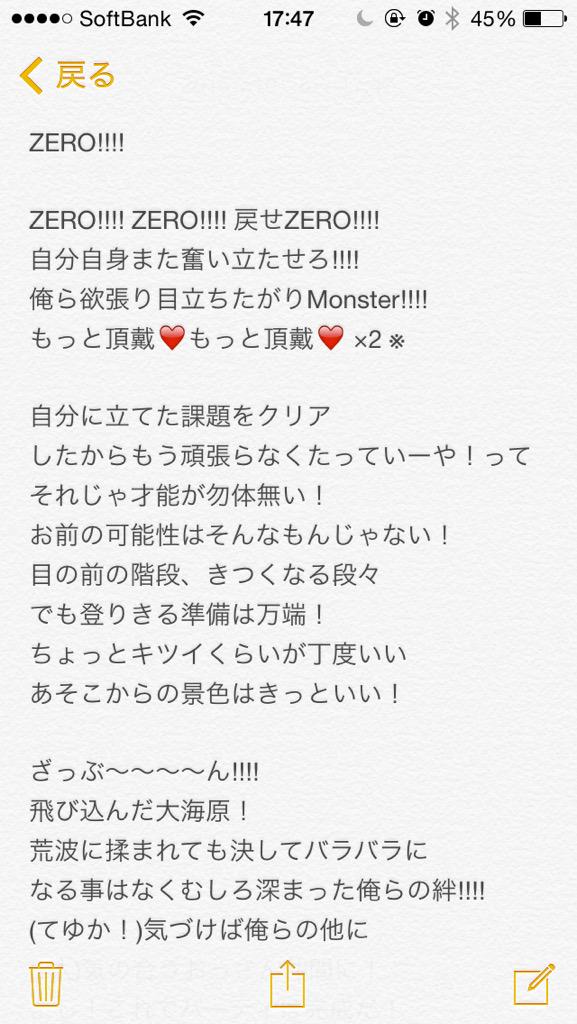 SoftBank 17:47 45%
戻る
ZERO!!!!
ZERO!!!! ZERO!!!! 戻せZERO!!!!
自分自身また奮い立たせろ!!!!
俺ら欲張り目立ちたがりMonster!!!!
もっと頂戴❤️もっと頂戴❤️ ×2 ※
自分に立てた課題をクリア
したからもう頑張らなくたっていーや！って
それじゃ才能が勿体無い！
お前の可能性はそんなもんじゃない！
目の前の階段、きつくなる段々
でも登りきる準備は万端！
ちょっとキツイくらいが丁度いい
あそこからの景色はきっといい！
ざっぶ〜〜〜〜ん!!!!
飛び込んだ大海原！
荒波に揉まれても決してバラバラに
なる事はなくむしろ深まった俺らの絆!!!!
(てゆか！)気づけば俺らの他に